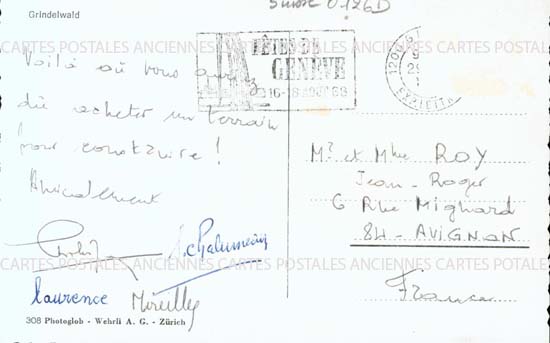 Suisse 0126D
Grindelwald
FÊTES DE
GENÈVE
16-18 AOUT 69
1200 G
EXPEDITION
CARTES POSTALES ANCIENNES CARTES POSTALES ANCIENNES CARTES POSTALES
Voilà où vous auriez
dû acheter un terrain
pour construire !
Amicalement
Mr et Mme ROY
Jean-Roger
6 Rue Mignard
84 - AVIGNON
France
CARTES POSTALES ANCIENNES CARTES POSTALES ANCIENNES CARTES POSTALES
laurence Mireille
308 Photoglob - Wehrli A. G. - Zürich